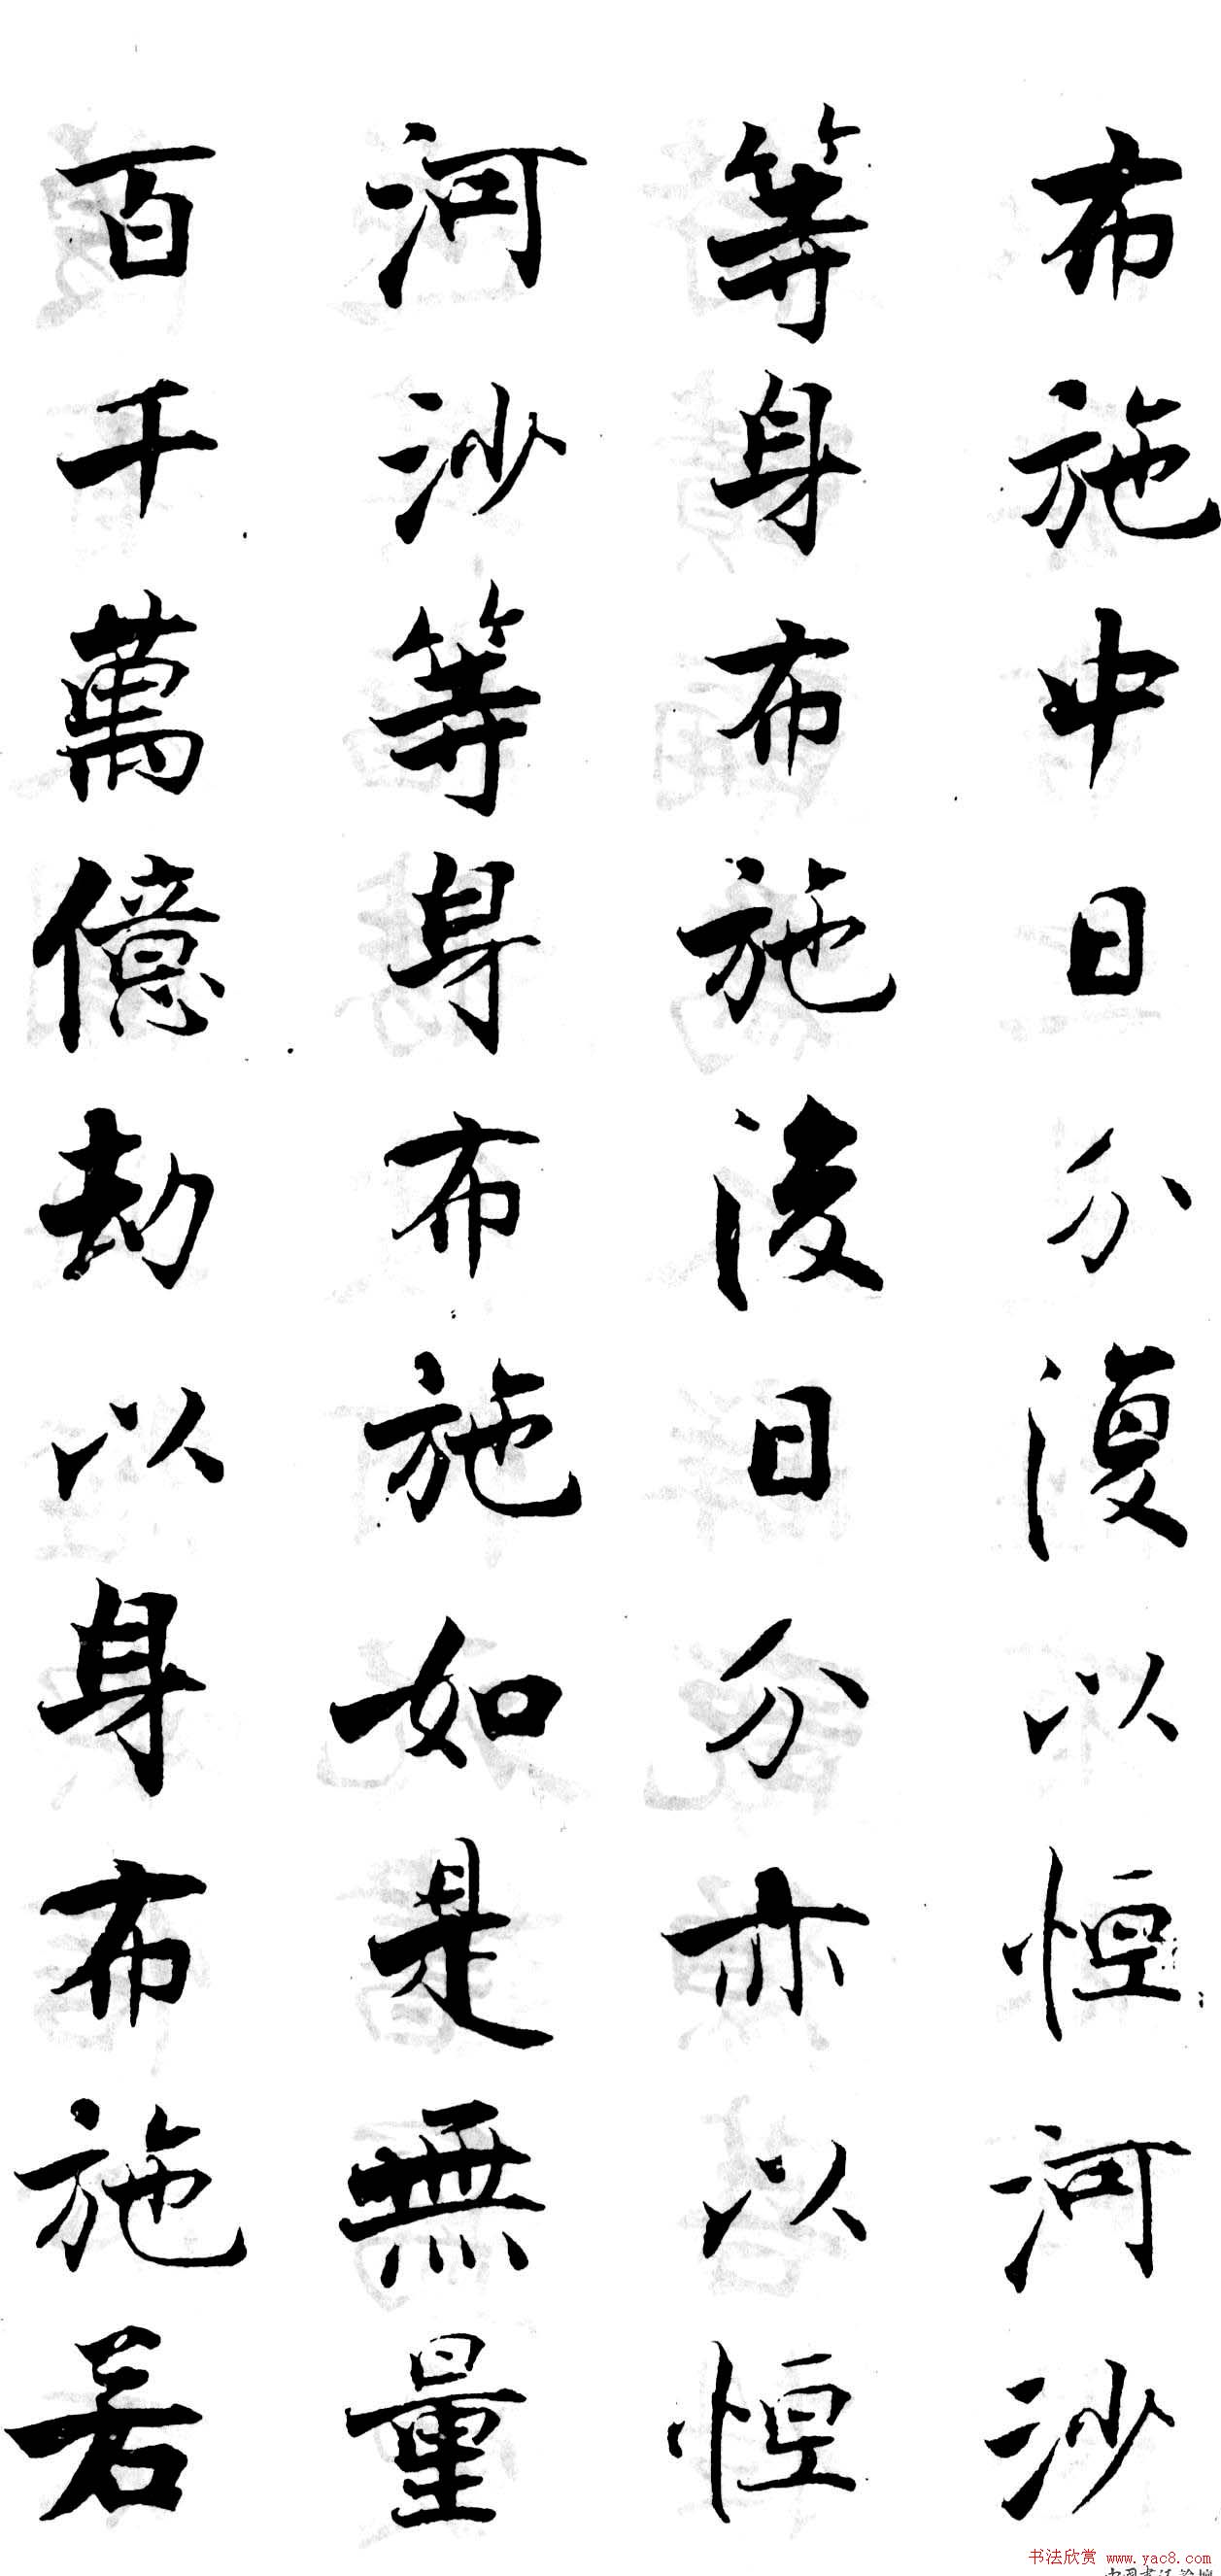 布施中日分復以恒河沙
等身布施後日分亦以恒
河沙等身布施如是無量
百千萬億劫以身布施若
书法欣赏 www.yac8.com